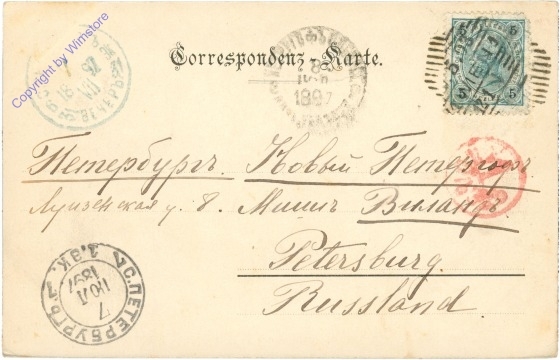 Copyright by Wimstore
Correspondenz-Karte.
5 5
1897
Петербургъ. Новый Петергофъ
Луизенская у. 8. Мишъ Виландъ
Petersburg.
Russland.
С.ПЕТЕРБУРГЪ
7
ІЮЛ
1897